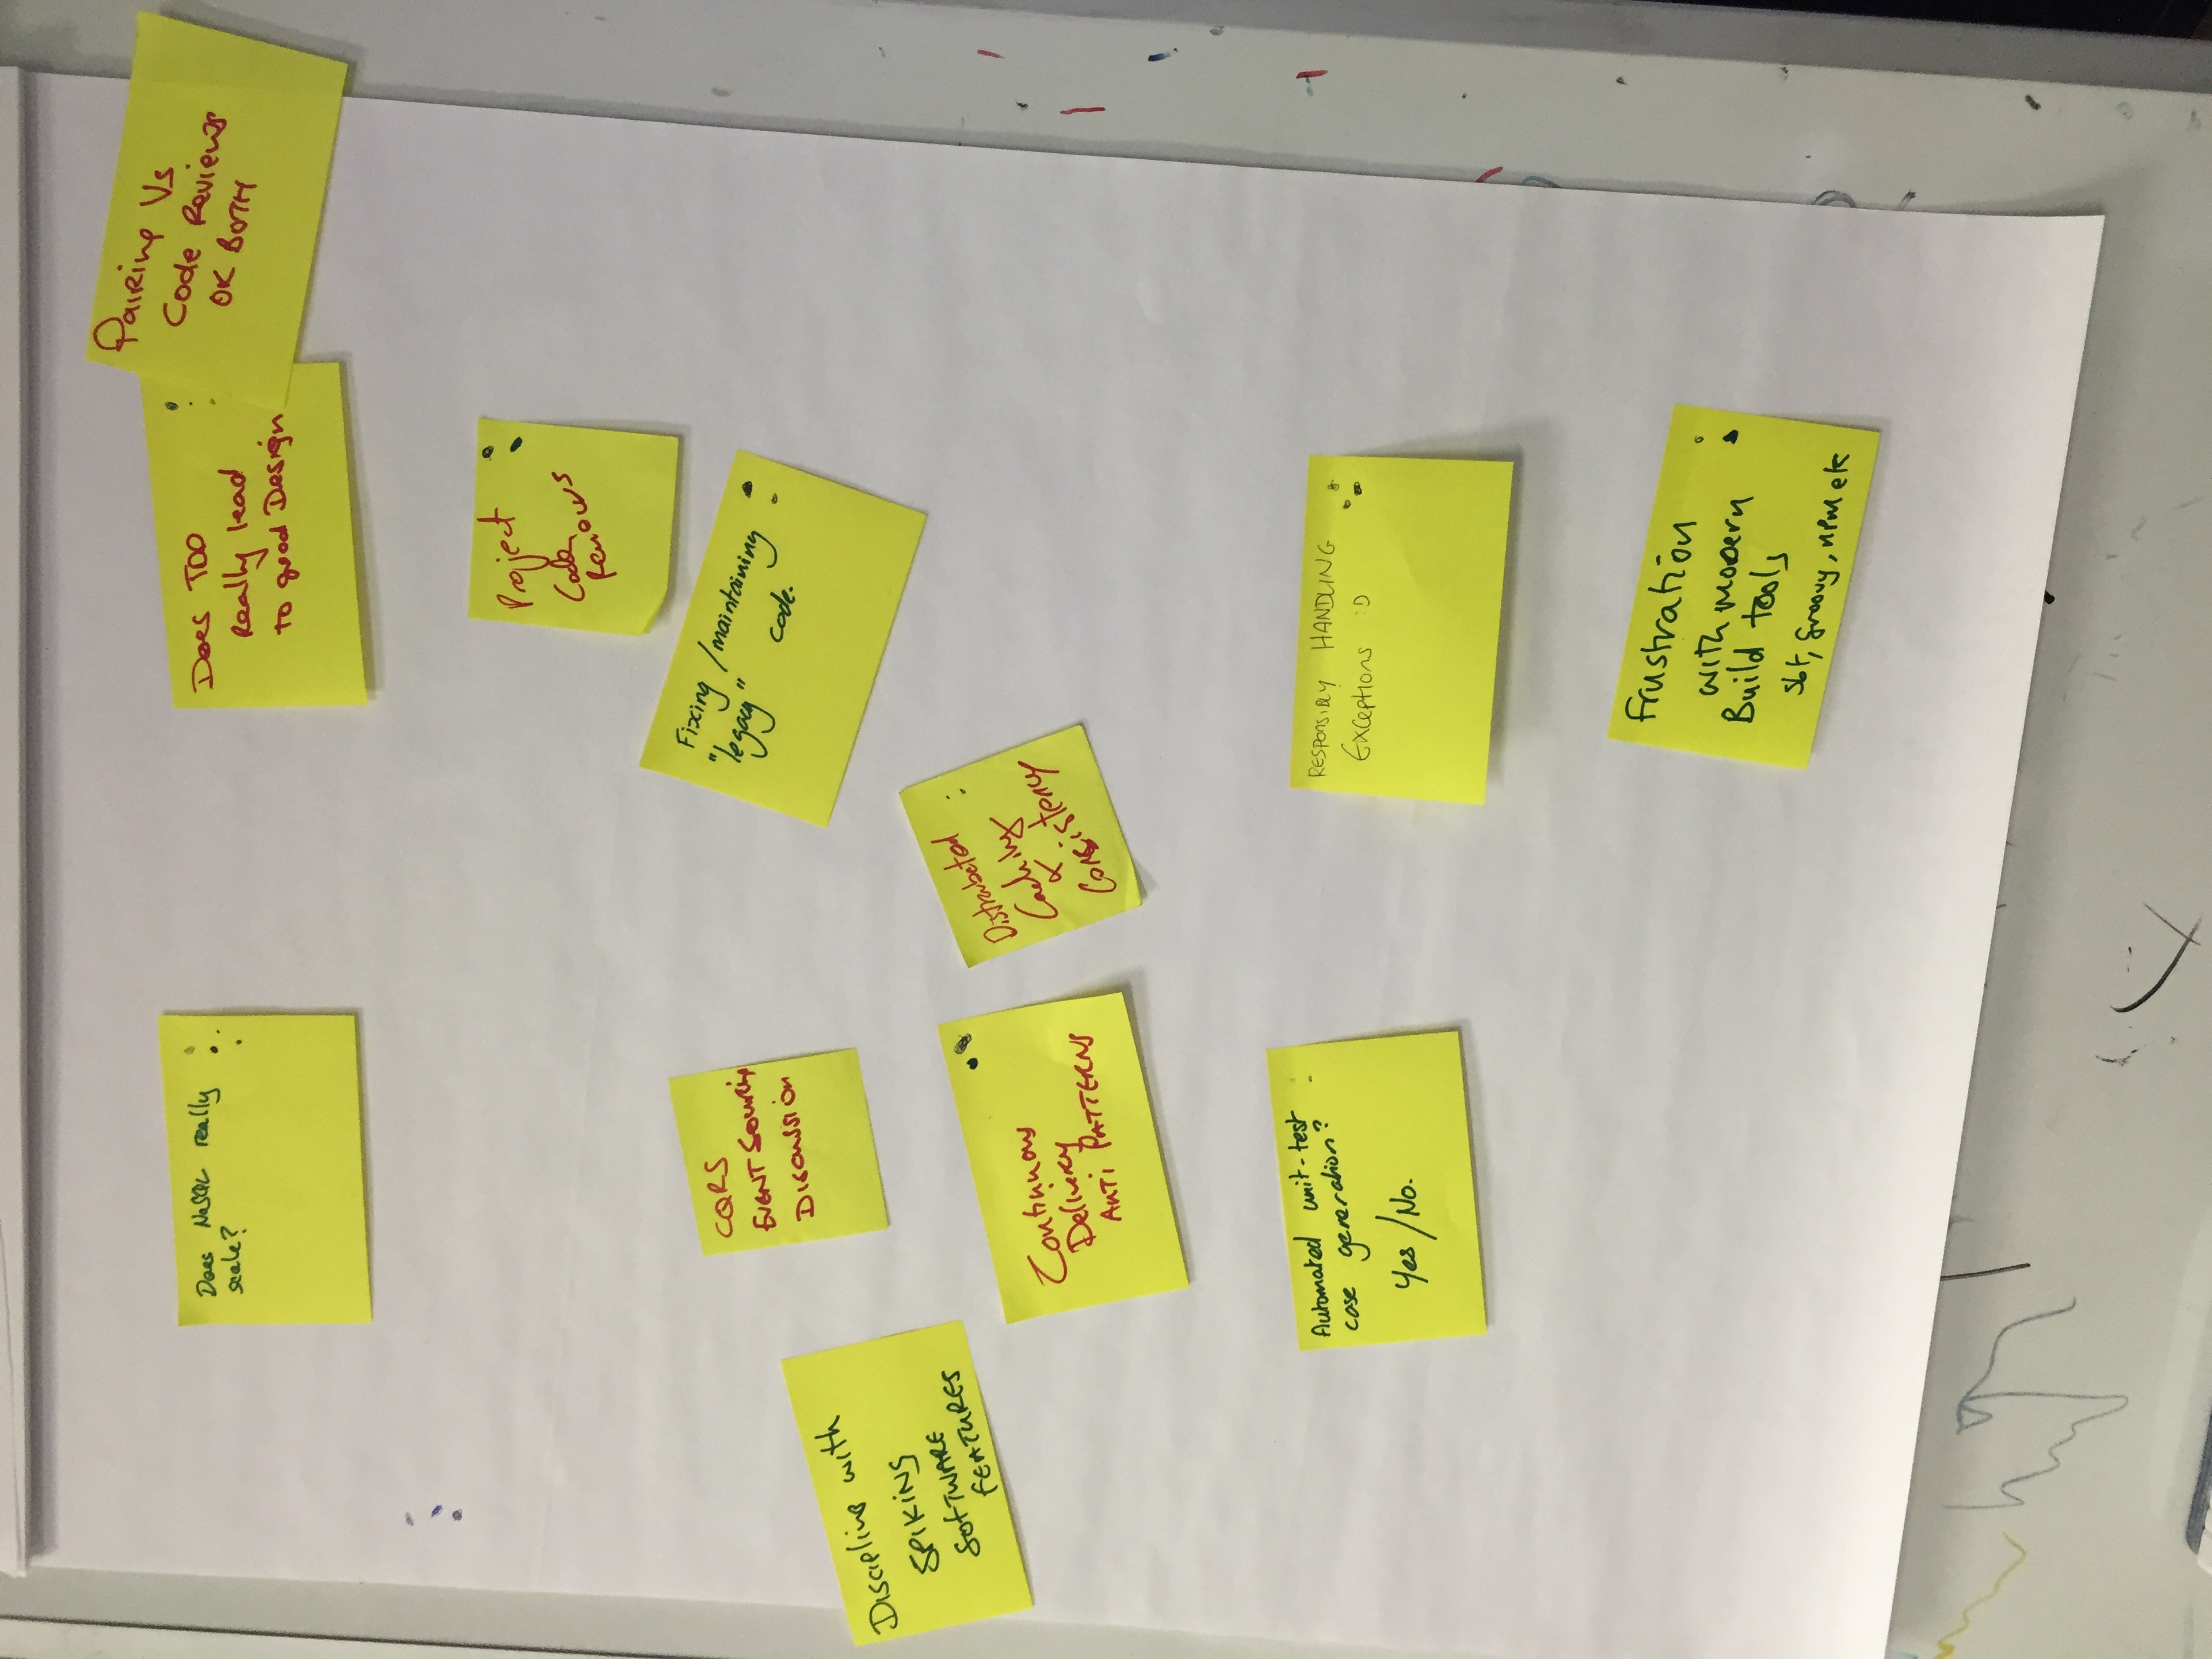 Does NoSQL really
scale?
Does TDD
Really lead
to good Design
Pairing Vs
Code Reviews
OK BOTH
Project
Code
Reviews
CQRS
EVENT Sourcing
Discussion
Fixing / maintaining
"legacy" code.
Discipline with
SPIKING
SOFTWARE
FEATURES
Continuous
Delivery
ANTI PATTERNS
Distributed
Caching
&
Consistency
Automated unit-test
case generation?
Yes / No.
RESPONSIBLY HANDLING
Exceptions :D
Frustration
with modern
Build tools
sbt, groovy, npm etc